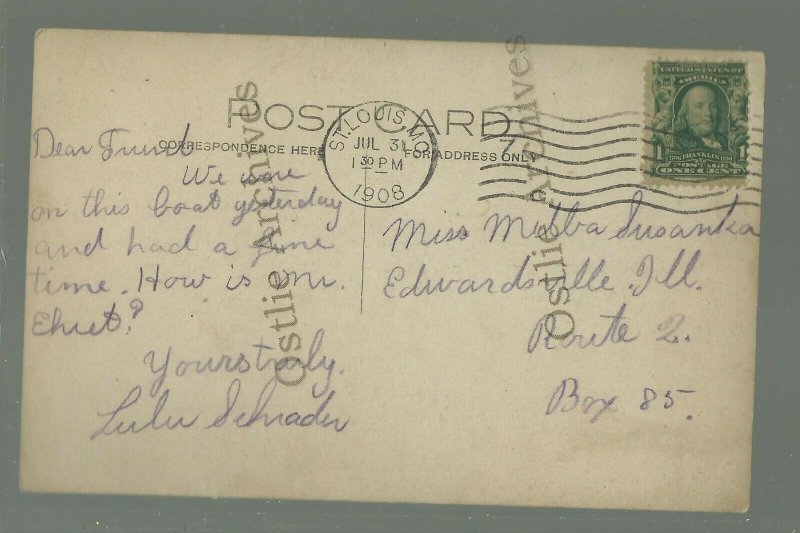 POST CARD
CORRESPONDENCE HERE
FOR ADDRESS ONLY
ST. LOUIS, MO.
JUL 31
1 30 PM
1908
7
UNITED STATES OF AMERICA
FRANKLIN
1 POSTAGE 1
ONE CENT
Dear Friend
We were
on this boat yesterday
and had a fine
time. How is Mr.
Yours truly.
Lulu Schrader
Miss Melba Susanka
Edwardsville Ill.
Route 2.
Box 85.
Ostlie Archives
Ostlie Archives